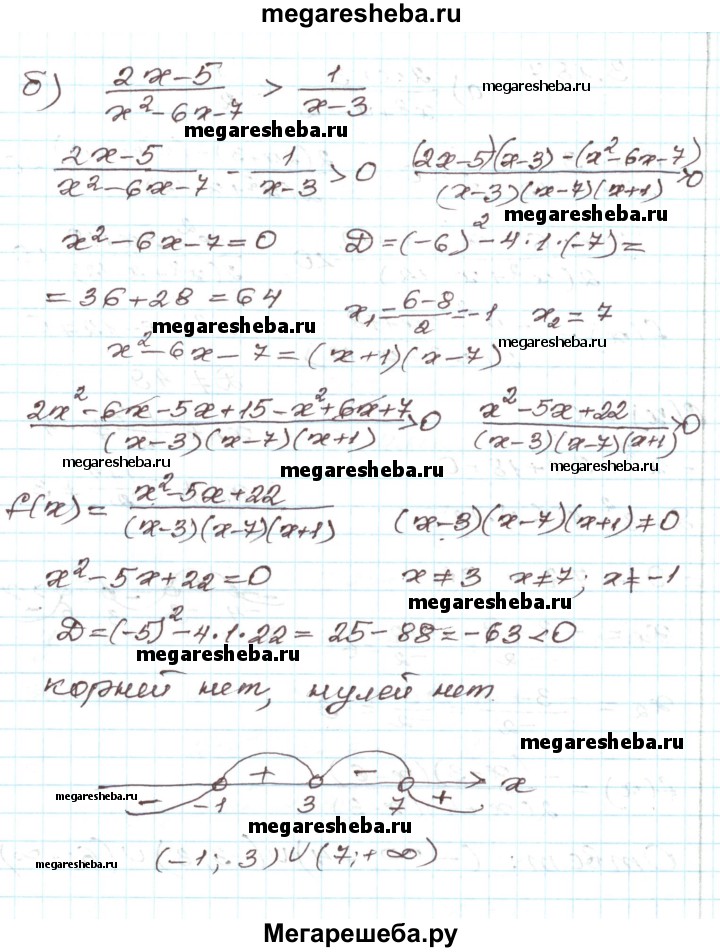 megaresheba.ru
б) (2x-5)/(x²-6x-7) > 1/(x-3)
megaresheba.ru
megaresheba.ru
(2x-5)/(x²-6x-7) - 1/(x-3) > 0 ((2x-5)(x-3)-(x²-6x-7))/((x-3)(x-7)(x+1)) > 0
megaresheba.ru
x²-6x-7=0 D=(-6)²-4·1·(-7)=
=36+28=64 x₁=(6-8)/2=-1 x₂=7
megaresheba.ru
megaresheba.ru
x²-6x-7=(x+1)(x-7)
(2x²-6x-5x+15-x²+6x+7)/((x-3)(x-7)(x+1)) > 0 (x²-5x+22)/((x-3)(x-7)(x+1)) > 0
megaresheba.ru
megaresheba.ru
megaresheba.ru
f(x)=(x²-5x+22)/((x-3)(x-7)(x+1)) (x-3)(x-7)(x+1)≠0
x²-5x+22=0 x≠3 x≠7; x≠-1
megaresheba.ru
D=(-5)²-4·1·22=25-88=-63<0
megaresheba.ru
корней нет, нулей нет.
megaresheba.ru
- + - + x
megaresheba.ru
-1 3 7
megaresheba.ru
megaresheba.ru
(-1; 3)∪(7;+∞)
Мегарешеба.ру